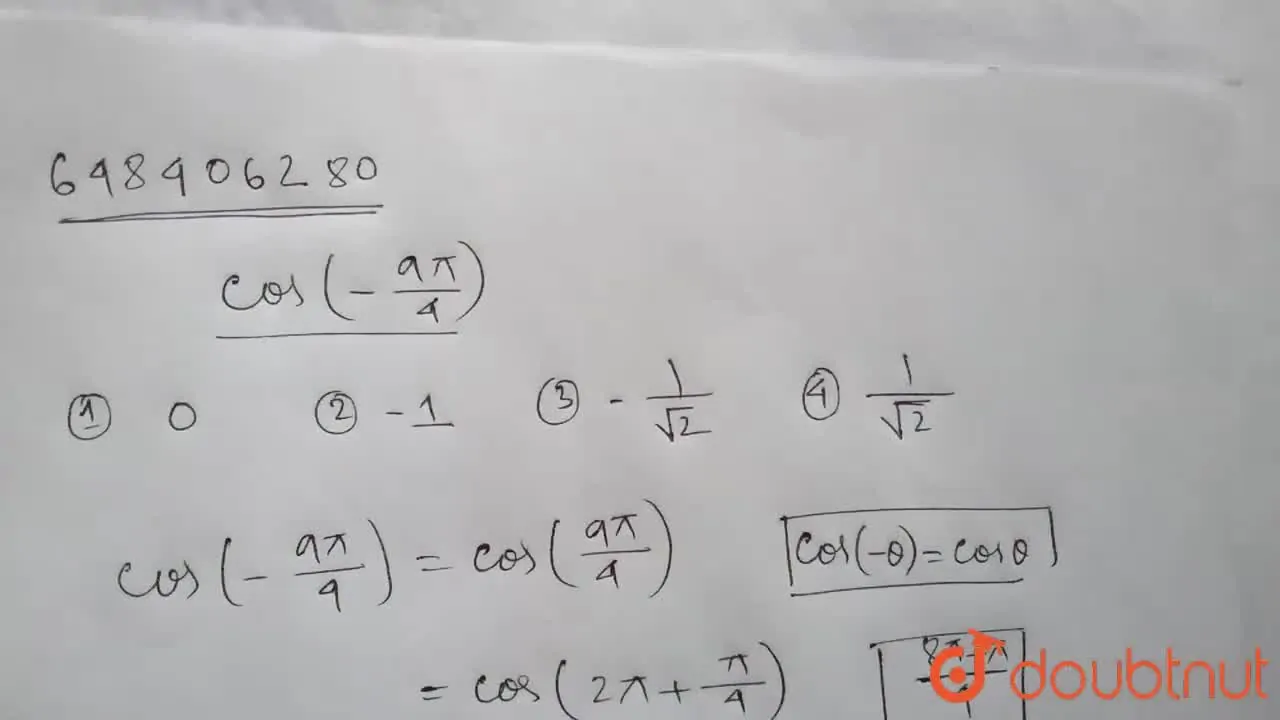 648406280
cos(-9π/4)
① 0 ② -1 ③ -1/√2 ④ 1/√2
cos(-9π/4) = cos(9π/4) cos(-θ)=cosθ
= cos(2π+π/4)
doubtnut